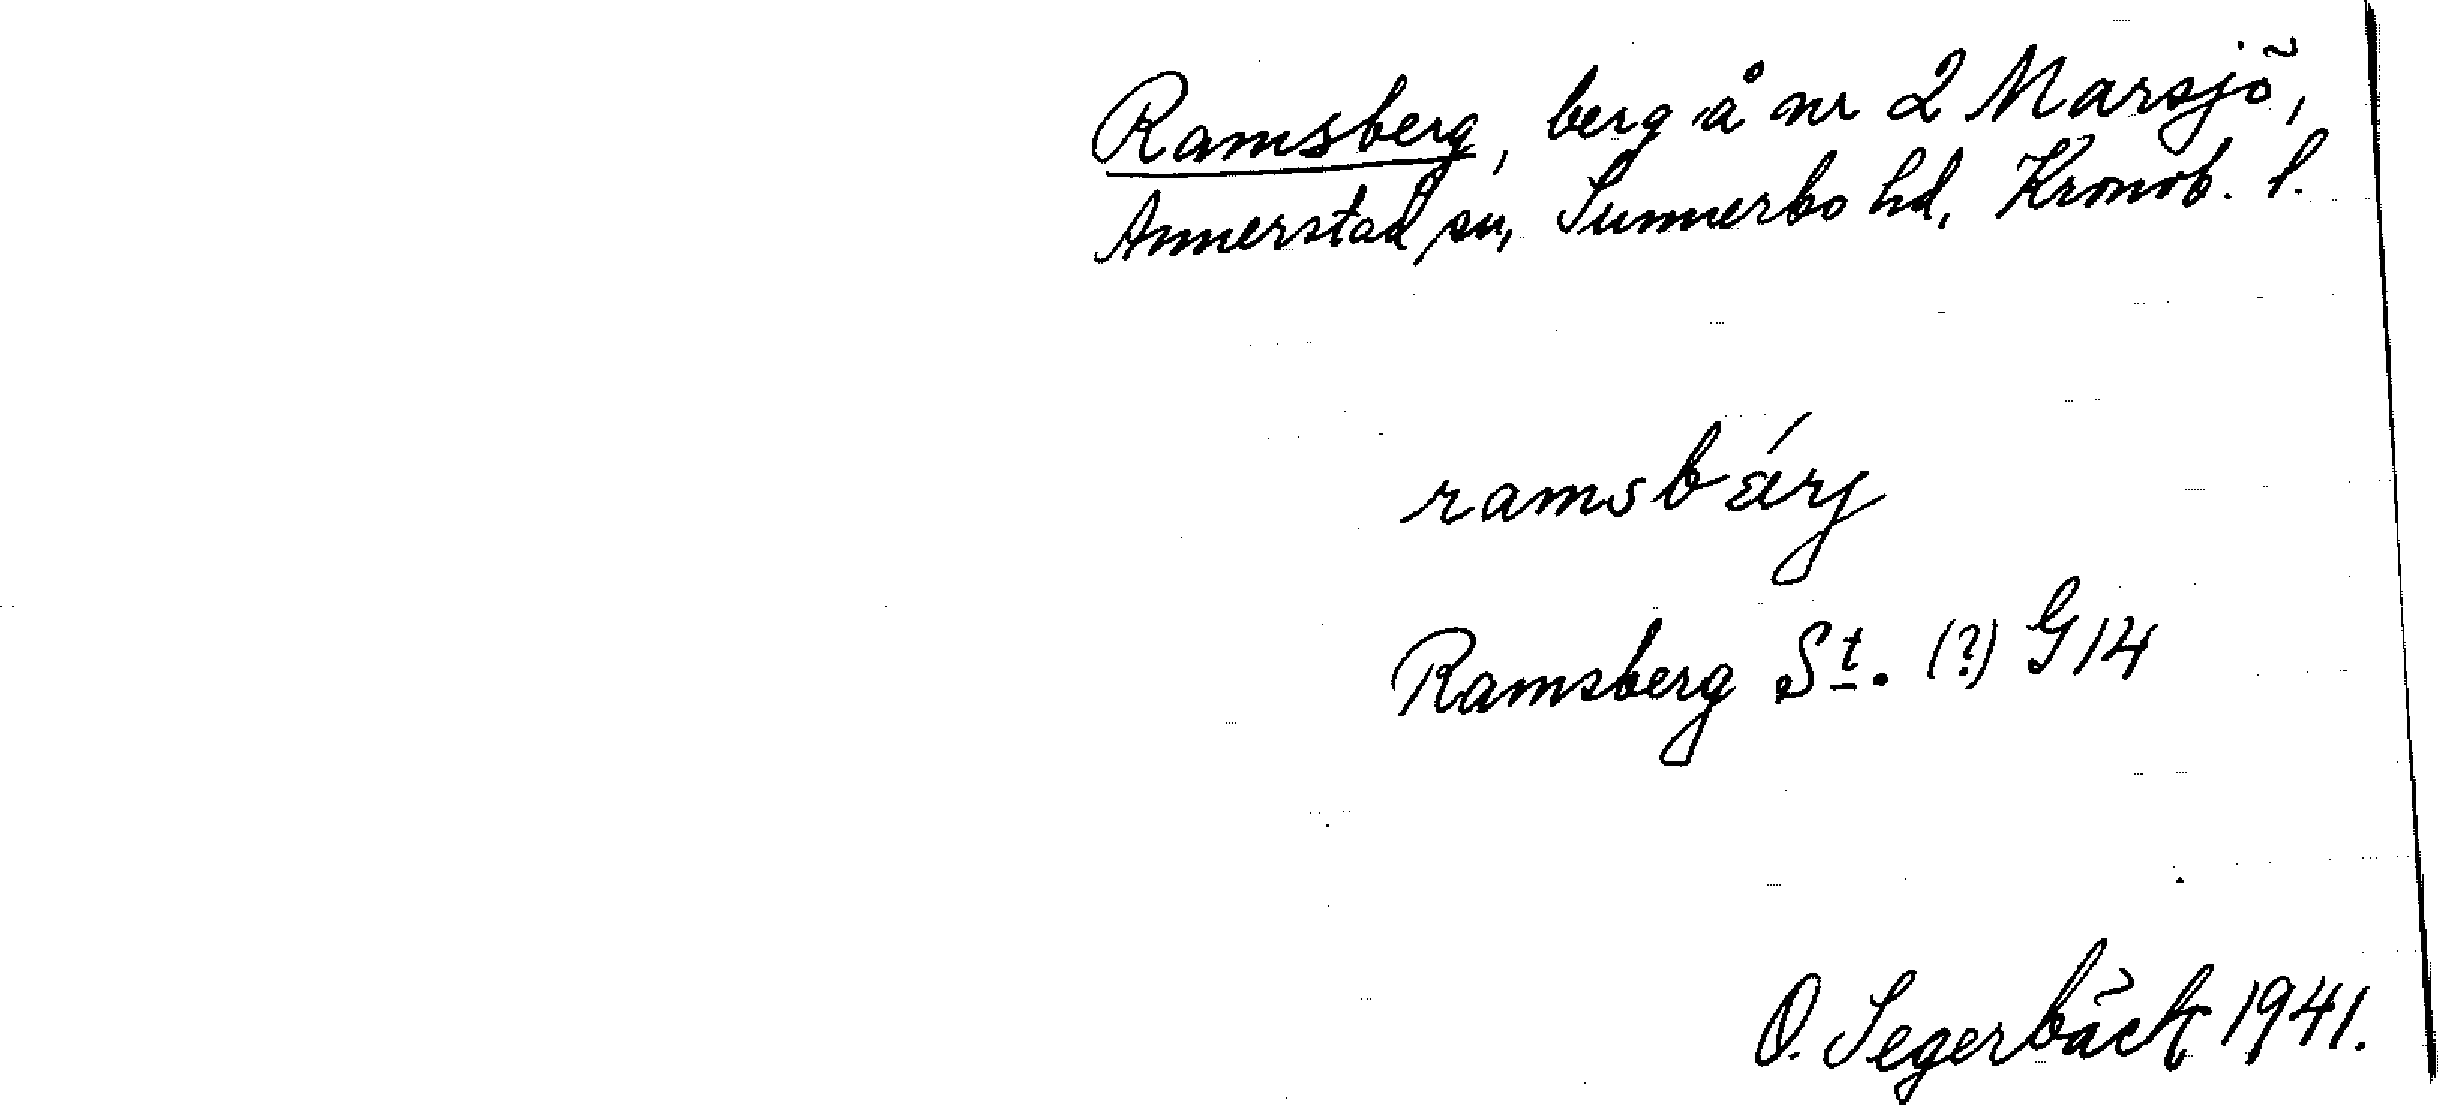 Ramsberg, berg å nr 2 Marsjö,
Annerstad sn, Sunnerbo hd, Kronob. l.
ramsbárj
Ramsberg St. (?) G 14
O. Segerbäck 1941.